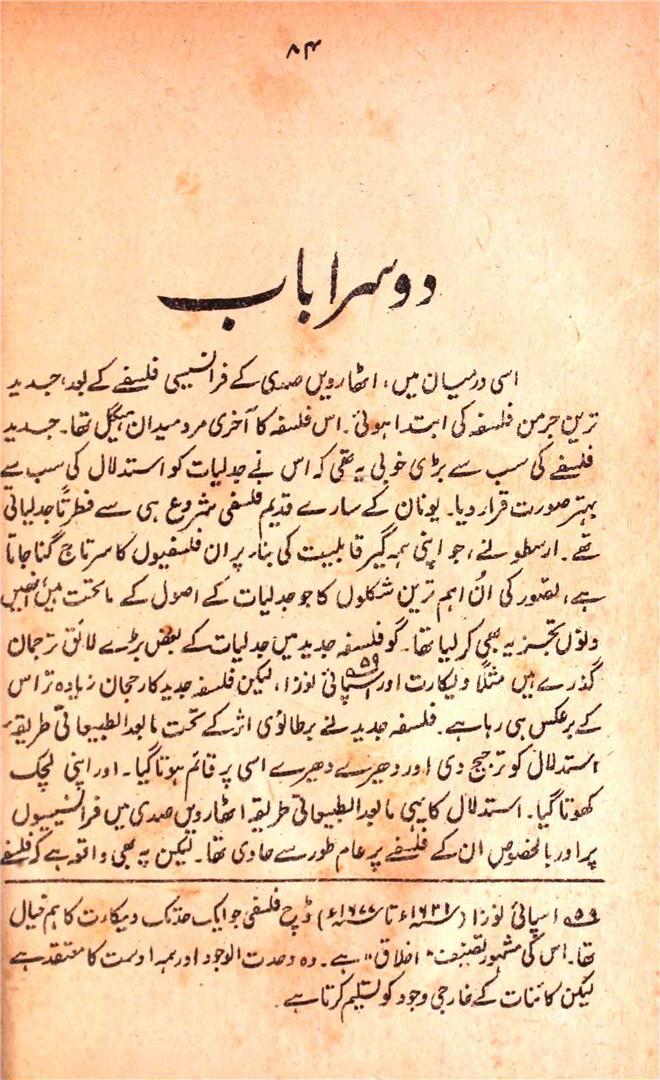 ۸۴
دوسرا باب
اسی درمیان میں، اٹھارویں صدی کے فرانسیسی فلسفے کے بعد، جدید
ترین جرمن فلسفہ کی ابتدا ہوئی۔ اس فلسفہ کا آخری مرد میدان ہیگل تھا۔ جدید
فلسفے کی سب سے بڑی خوبی یہ تھی کہ اس نے جدلیات کو استدلال کی سب سے
بہتر صورت قرار دیا۔ یونان کے سارے قدیم فلسفی شروع ہی سے فطرتاً جدلیاتی
تھے۔ ارسطو نے، جو اپنی ہمہ گیر قابلیت کی بناء پر ان فلسفیوں کا سرتاج گنا جاتا
ہے، تصور کی اُن اہم ترین شکلوں کا جو جدلیات کے اصول کے ماتحت ہیں، انھیں
دنوں تجزیہ بھی کر لیا تھا۔ گو فلسفہ جدید میں جدلیات کے بعض بڑے لائق ترجمان
گذرے ہیں مثلاً دیکارت اور اسپائی نوزا ۵۹، لیکن فلسفہ جدید کا رجحان زیادہ تر اس
کے برعکس ہی رہا ہے۔ فلسفہ جدید نے برطانوی اثر کے تحت مابعد الطبیعاتی طریقہ
استدلال کو ترجیح دی اور دھیرے دھیرے اسی پر قائم ہوتا گیا۔ اور اپنی لچک
کھوتا گیا۔ استدلال کا یہی مابعد الطبیعاتی طریقہ اٹھارویں صدی میں فرانسیسیوں
پر اور بالخصوص ان کے فلسفے پر عام طور سے حاوی تھا۔ لیکن یہ بھی واقعہ ہے کہ فلسفے
۵۹ اسپائی نوزا (۱۶۳۲ء تا ۱۶۷۷ء) ڈچ فلسفی جو ایک حد تک دیکارت کا ہم خیال
تھا۔ اس کی مشہور تصنیف "اخلاق" ہے۔ وہ وحدت الوجود اور ہمہ اوست کا معتقد ہے
لیکن کائنات کے خارجی وجود کو تسلیم کرتا ہے۔